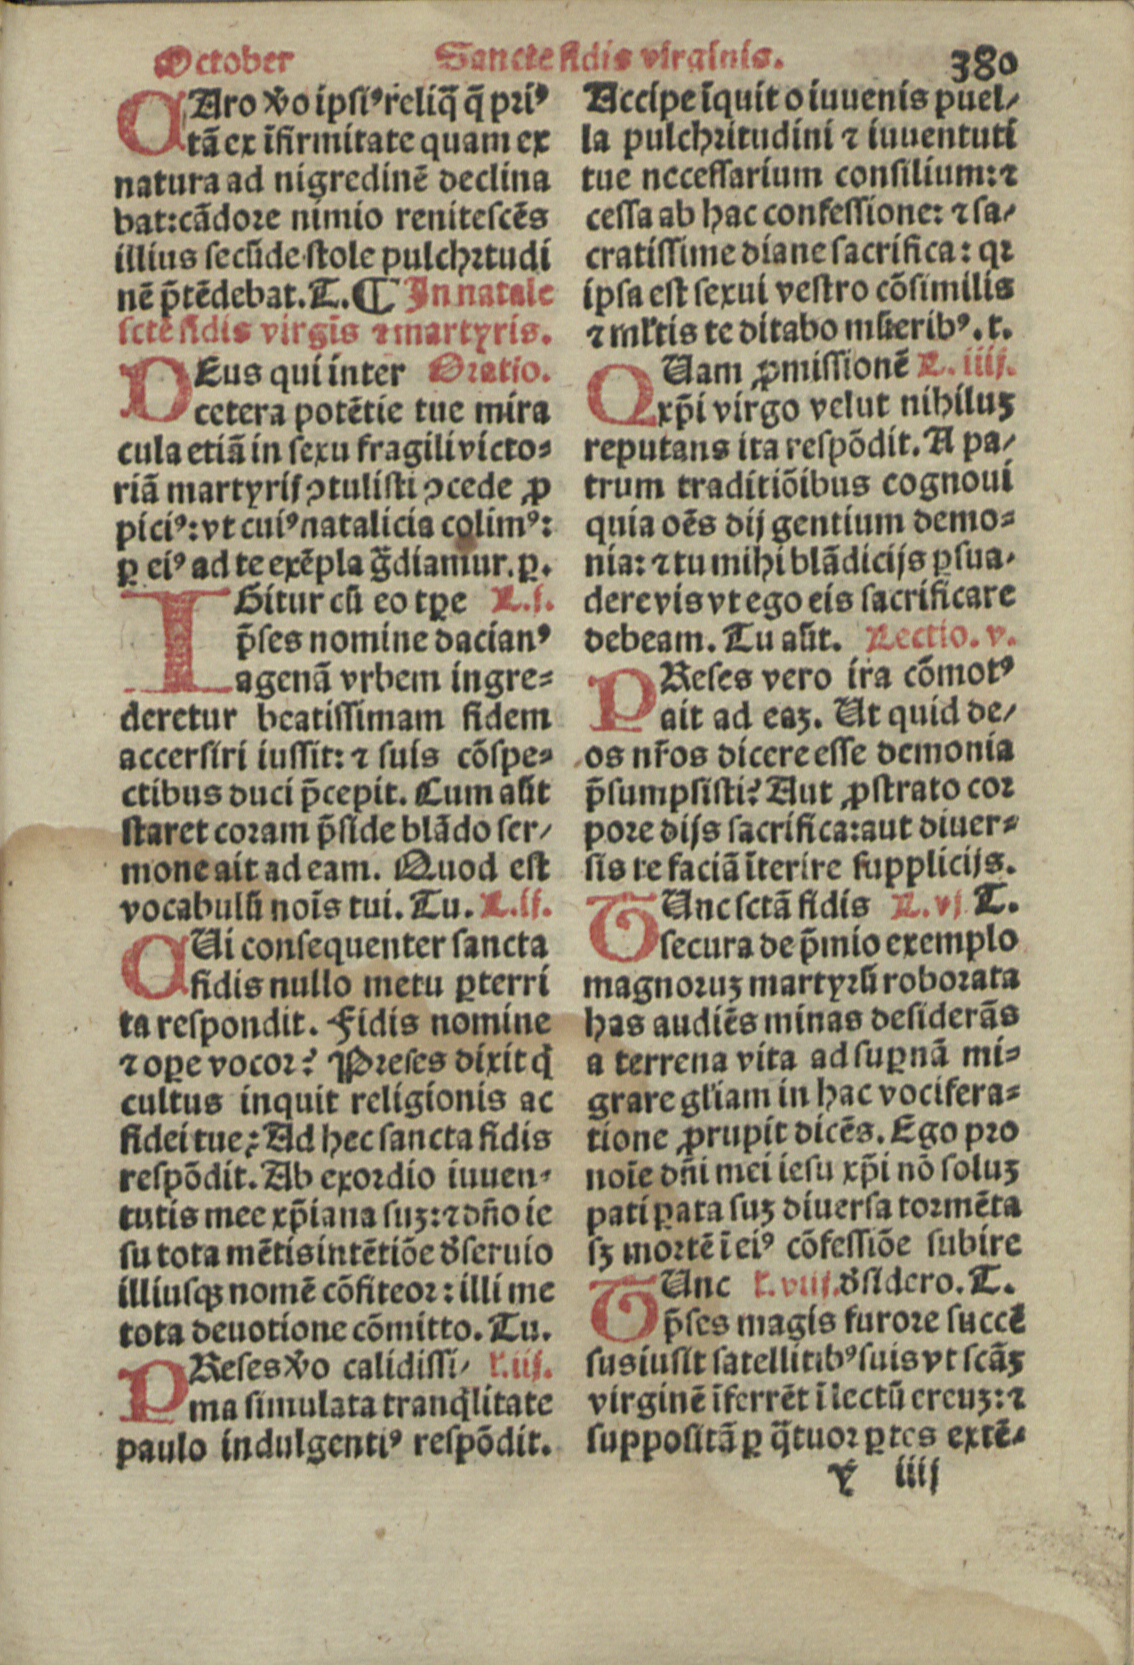 October Sancte fidis virginis. 380
CAro v̄o ipsiꝰ reliq̄ q̄ priꝰ
tā ex īfirmitate quam ex
natura ad nigredinē declina
bat: cādore nimio renitescēs
illius secūde stole pulchritudi
nē p̄tēdebat. T. ¶ In natale
scte fidis virgīs ⁊ martyris.
DEus qui inter Oratio.
cetera potētie tue mira
cula etiā in sexu fragili victo⸗
riā martyrij ꝯtulisti ꝯcede ꝓ
piciꝰ: vt cuiꝰ natalicia colimꝰ:
ꝑ eiꝰ ad te exēpla ḡdiamur. ꝑ.
IGitur cū eo tꝑe L.j.
p̄ses nomine dacianꝰ
agenā vrbem ingre⸗
deretur beatissimam fidem
accersiri iussit: ⁊ suis cōspe⸗
ctibus duci p̄cepit. Cum aūt
staret coram p̄side blādo ser/
mone ait ad eam. Quod est
vocabulū noīs tui. Tu. L.ij.
CUi consequenter sancta
fidis nullo metu ꝑterri
ta respondit. Fidis nomine
⁊ oꝑe vocor? Preses dixit q̄
cultus inquit religionis ac
fidei tue? Ad hec sancta fidis
respōdit. Ab exordio iuuen⸗
tutis mee xp̄iana suꝫ: ⁊ dn̄o ie
su tota mētis intētiōe d̄seruio
illiusqꝫ nomē cōfiteor: illi me
tota deuotione cōmitto. Tu.
PReses v̄o calidissi/ l.iij.
ma simulata tranq̄litate
paulo indulgentiꝰ respōdit.
Accipe īquit o iuuenis puel/
la pulchritudini ⁊ iuuentuti
tue necessarium consilium: ⁊
cessa ab hac confessione: ⁊ sa/
cratissime diane sacrifica: qr
ipsa est sexui vestro cōsimilis
⁊ ml̄tis te ditabo mūeribꝰ. t.
QUam ꝓmissionē L. iiij.
xp̄i virgo velut nihiluꝫ
reputans ita respōdit. A pa/
trum traditiōibus cognoui
quia oēs dij gentium demo⸗
nia: ⁊ tu mihi blādicijs ꝑsua⸗
dere vis vt ego eis sacrificare
debeam. Tu aūt. Lectio. v.
PReses vero ira cōmotꝰ
ait ad eaꝫ. Ut quid de/
os nr̄os dicere esse demonia
p̄sumpsisti? Aut ꝓstrato cor
pore dijs sacrifica: aut diuer⸗
sis te faciā īterire supplicijs.
TUnc sctā fidis L.vj T.
secura de p̄mio exemplo
magnoruꝫ martyrū roborata
has audiēs minas desiderās
a terrena vita ad suꝑnā mi⸗
grare gl̄iam in hac vocifera⸗
tione ꝓrupit dicēs. Ego pro
noīe dn̄i mei iesu xp̄i nō soluꝫ
pati ꝑata suꝫ diuersa tormēta
sꝫ mortē ī eiꝰ cōfessiōe subire
TUnc l.viij. d̄sidero. T.
p̄ses magis furore succē
sus iusit satellitibꝰ suis vt scāꝫ
virginē īferrēt ī lectū ereuꝫ: ⁊
suppositā ꝑ q̄tuor ꝑtes extē⸗
Y iiij